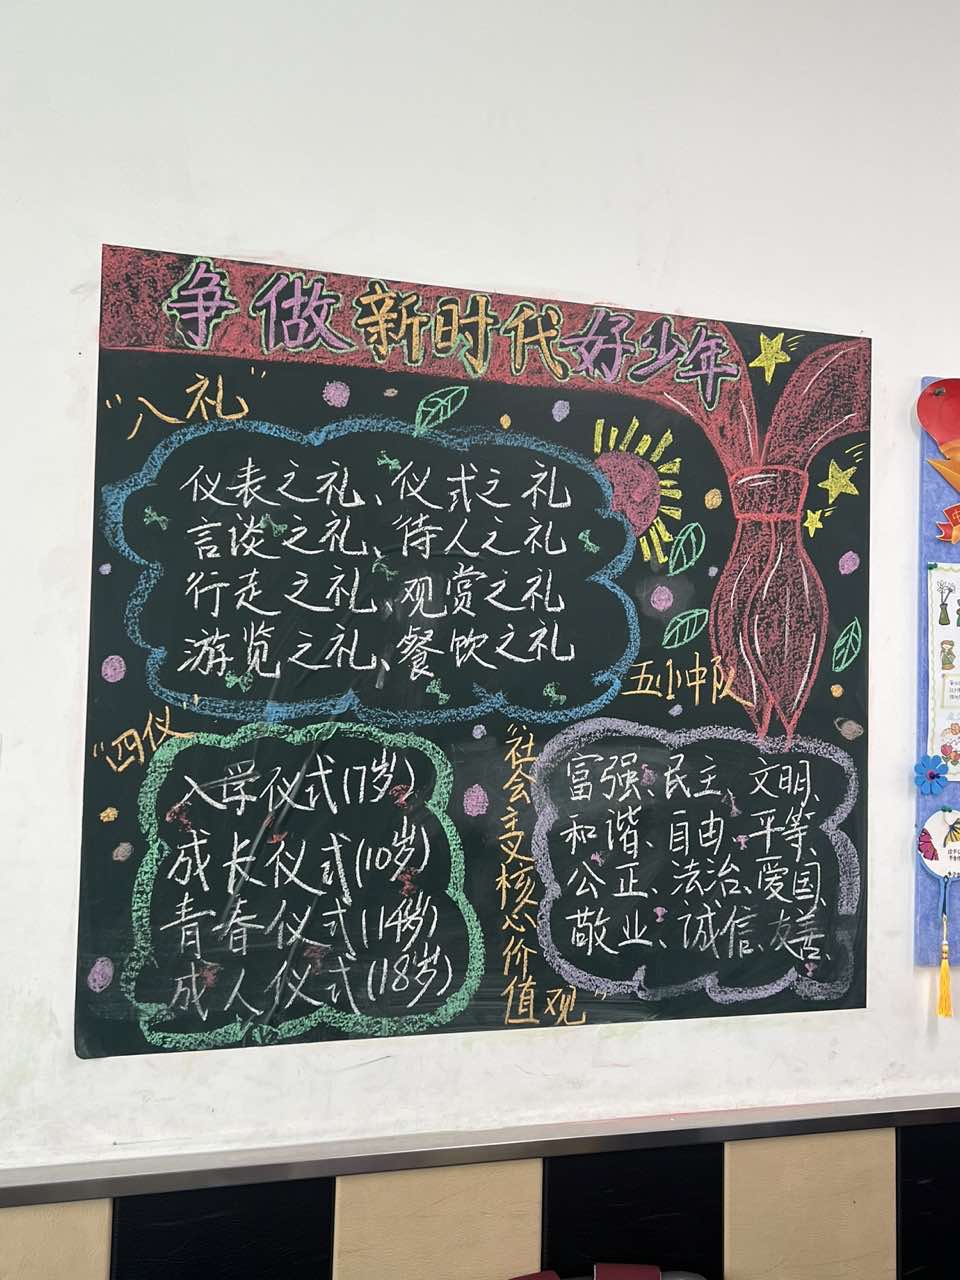 争做新时代好少年
“八礼”
仪表之礼、仪式之礼
言谈之礼、待人之礼
行走之礼、观赏之礼
游览之礼、餐饮之礼
五1中队
“四仪”
入学仪式(7岁)
成长仪式(10岁)
青春仪式(14岁)
成人仪式(18岁)
“社会主义核心价值观”
富强、民主、文明、
和谐、自由、平等、
公正、法治、爱国、
敬业、诚信、友善、